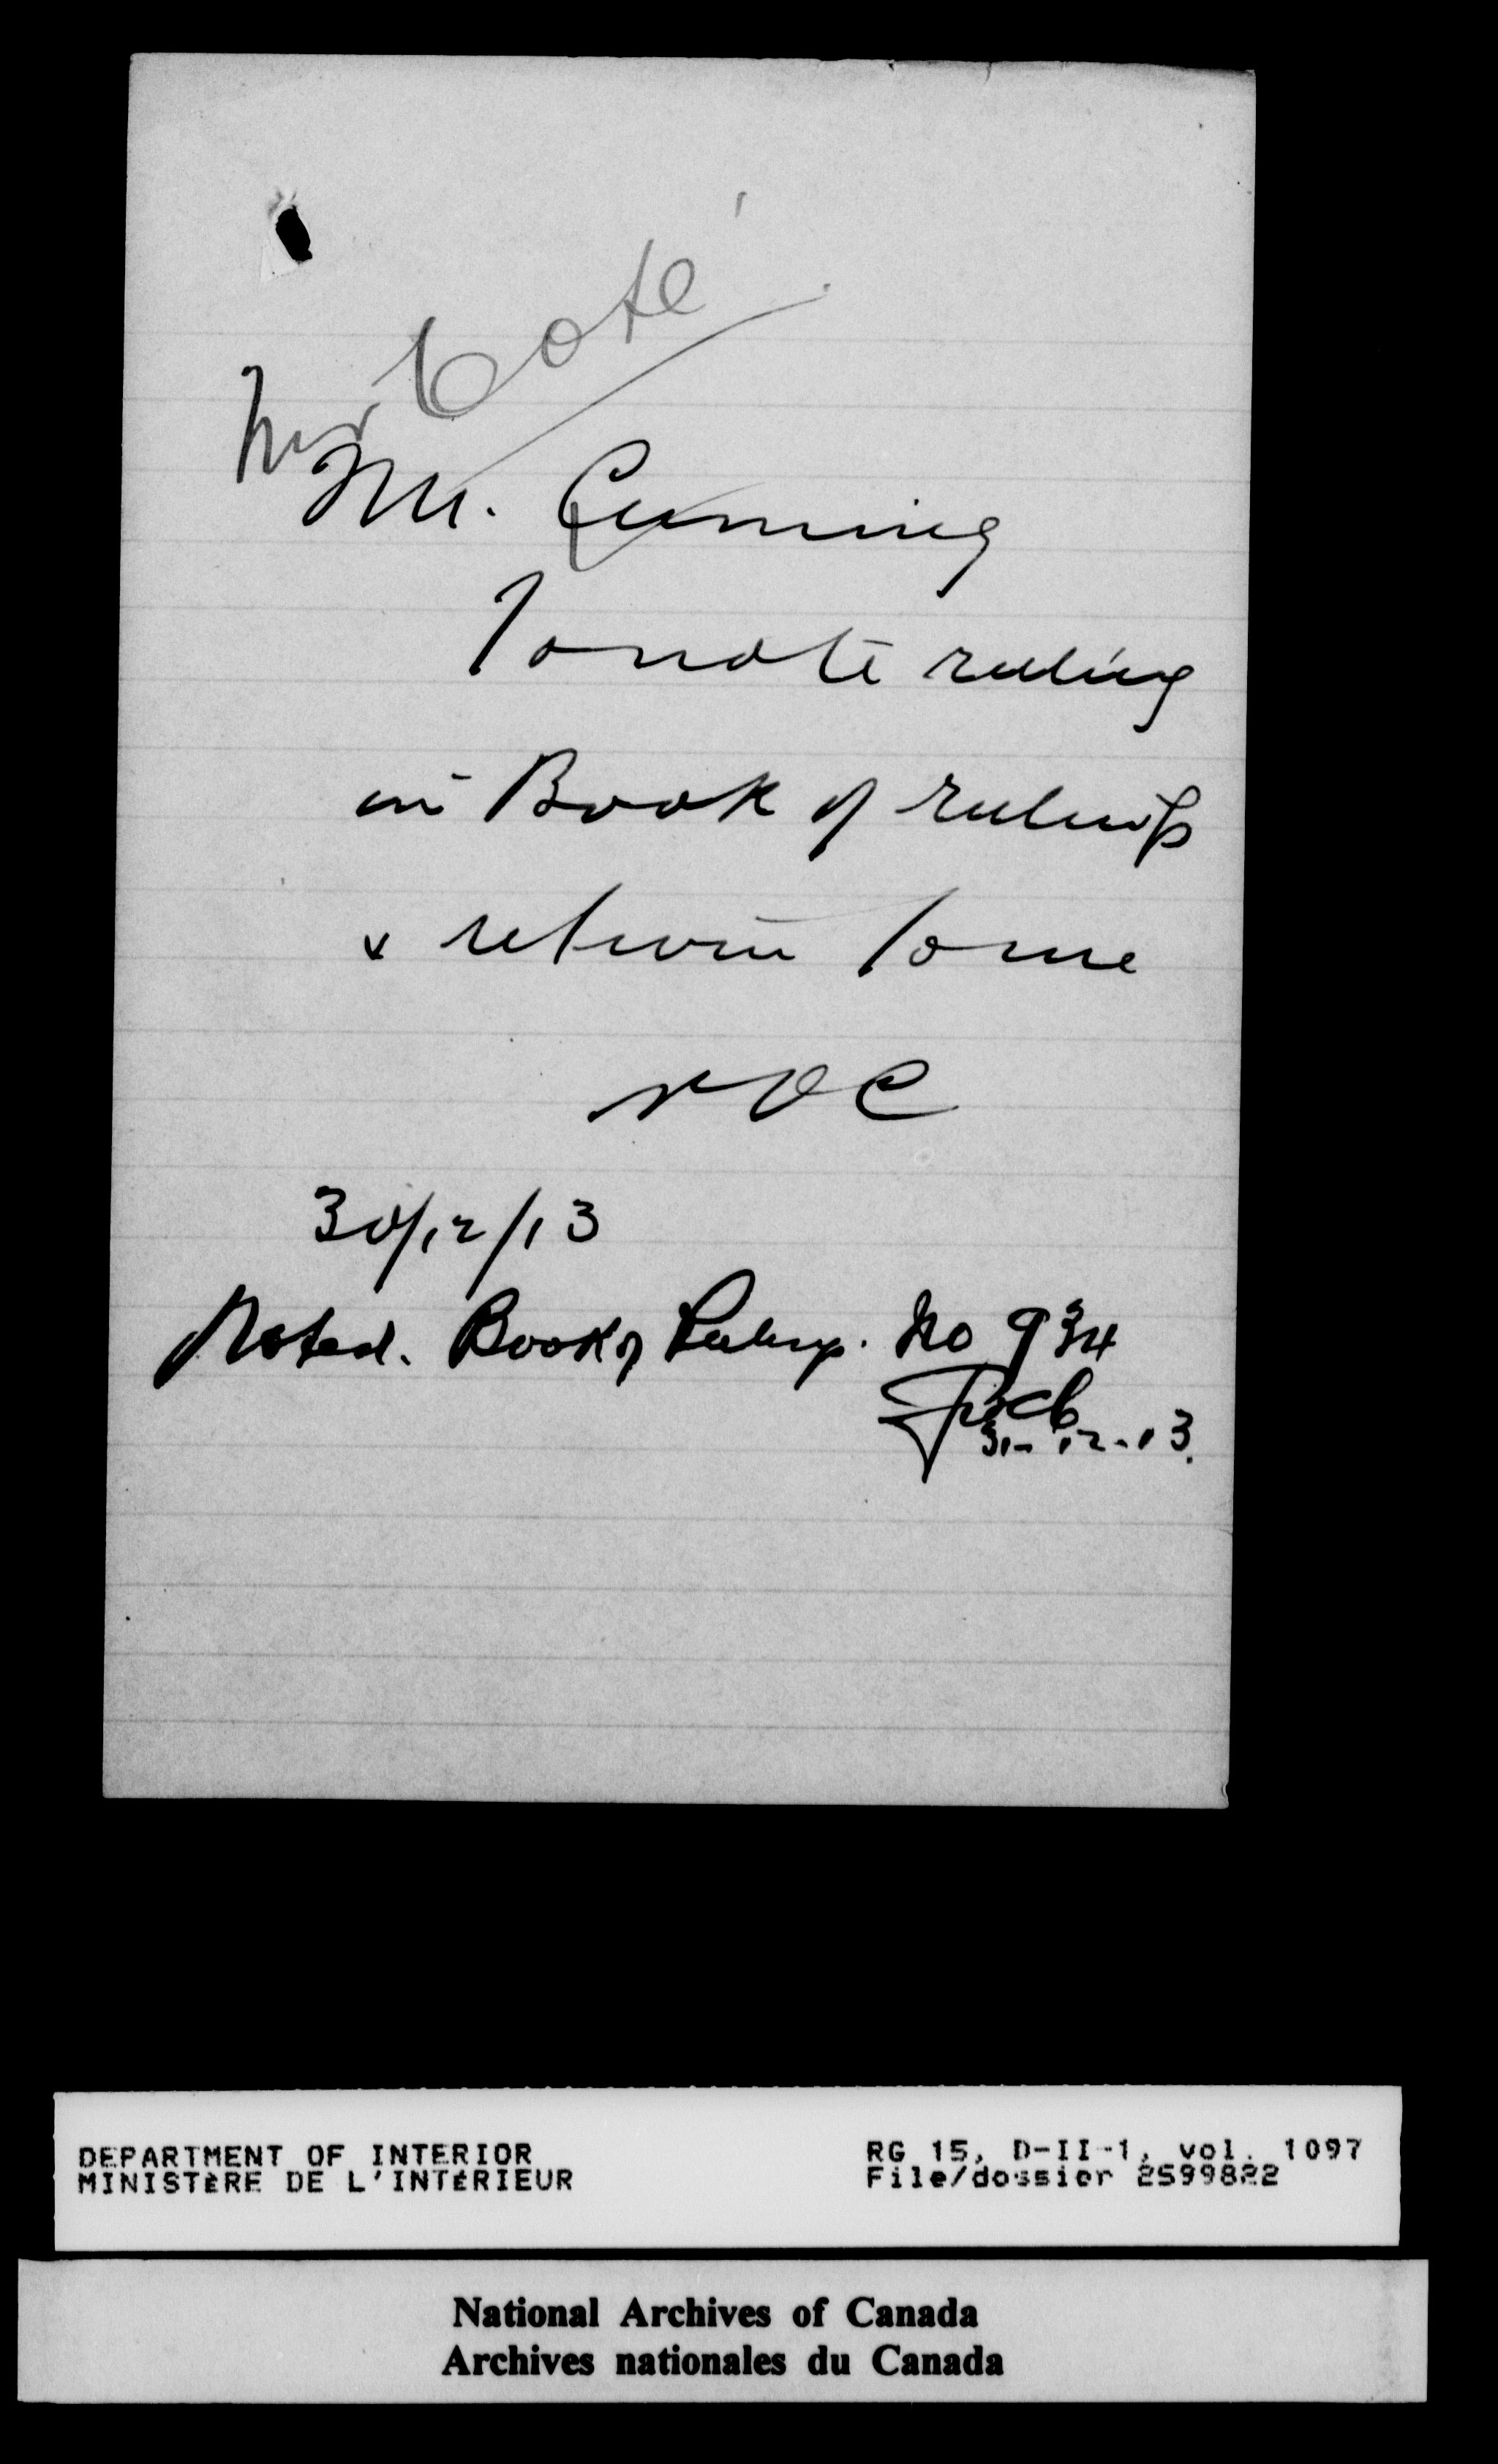 Mr Coté
Mr. Cumming
To note ruling
in Book of rulings
& return to me
NOC
30/12/13
Noted. Book of Rulings. No 934
31-12-13.
DEPARTMENT OF INTERIOR
MINISTÈRE DE L'INTÉRIEUR
RG 15, D-II-1, vol. 1097
File/dossier 2599822
National Archives of Canada
Archives nationales du Canada